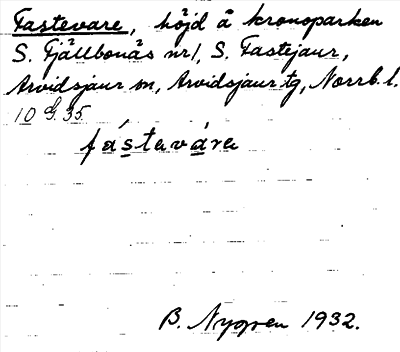 Fastevare, höjd å kronoparken
S. Fjällbonäs nr 1, S. Fastejaur,
Arvidsjaur sn, Arvidsjaur tg, Norrb. l.
10 G. 35.
fástavárɐ
B. Nygren 1932.